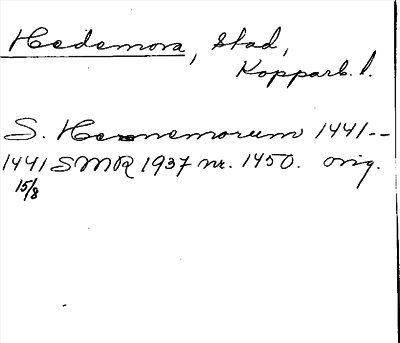 Hedemora, stad,
Kopparb. l.
S. Hemnemorum 1441--
1441 SMR 1937 nr. 1450. orig.
15/8